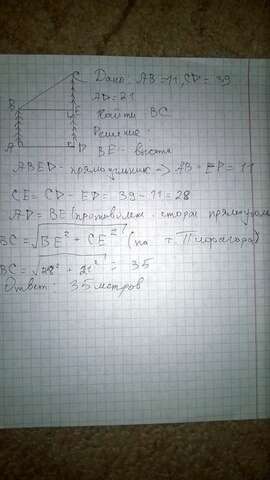 C
B
E
A
D
Дано: AB = 11, CD = 39
AD = 21
Найти: BC
Решение:
BE - высота
ABED - прямоугольник => AB = ED = 11
CE = CD - ED = 39 - 11 = 28
AD = BE (противолеж. сторон прямоугол
BC = √BE² + CE² (по т. Пифагора)
BC = √28² + 21² = 35
Ответ: 35 метров